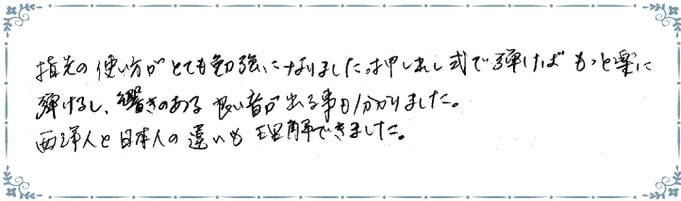 指先の使い方がとても勉強になりました。押しまし式で弾けばもっと楽に
弾けるし、響きのある良い音が出る事も分かりました。
西洋人と日本人の違いも理解できました。